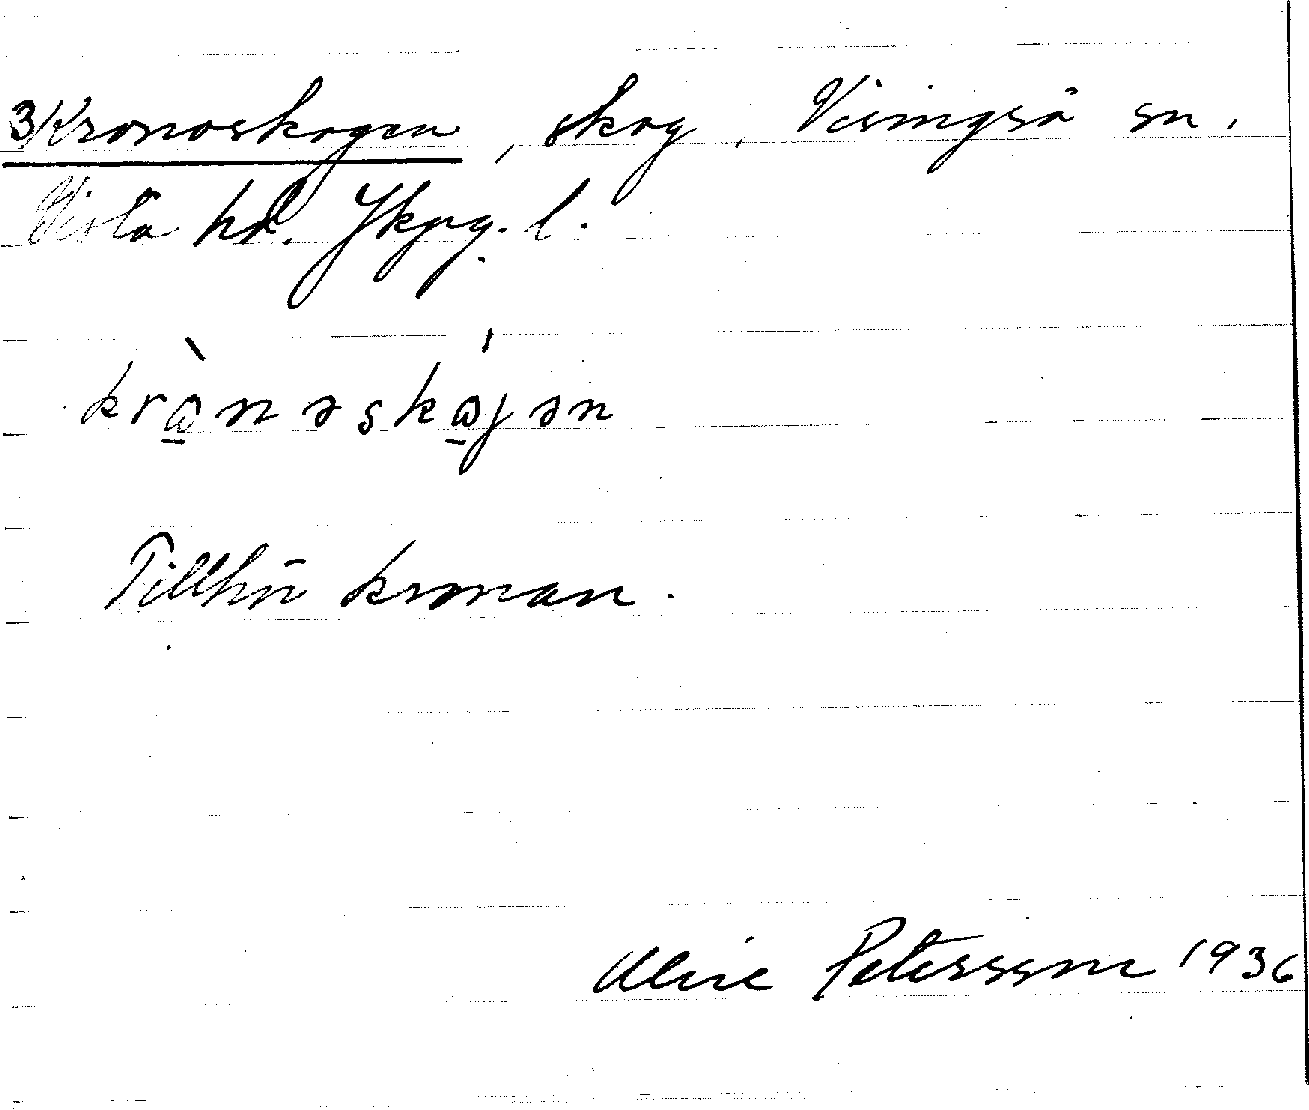 3/Kronoskogen, skog, Visingsö sn.
Vista hd. Jkpg. l.
krὼ̲nəskώ̲jən
Tillhör kronan.
Alice Petersson 1936